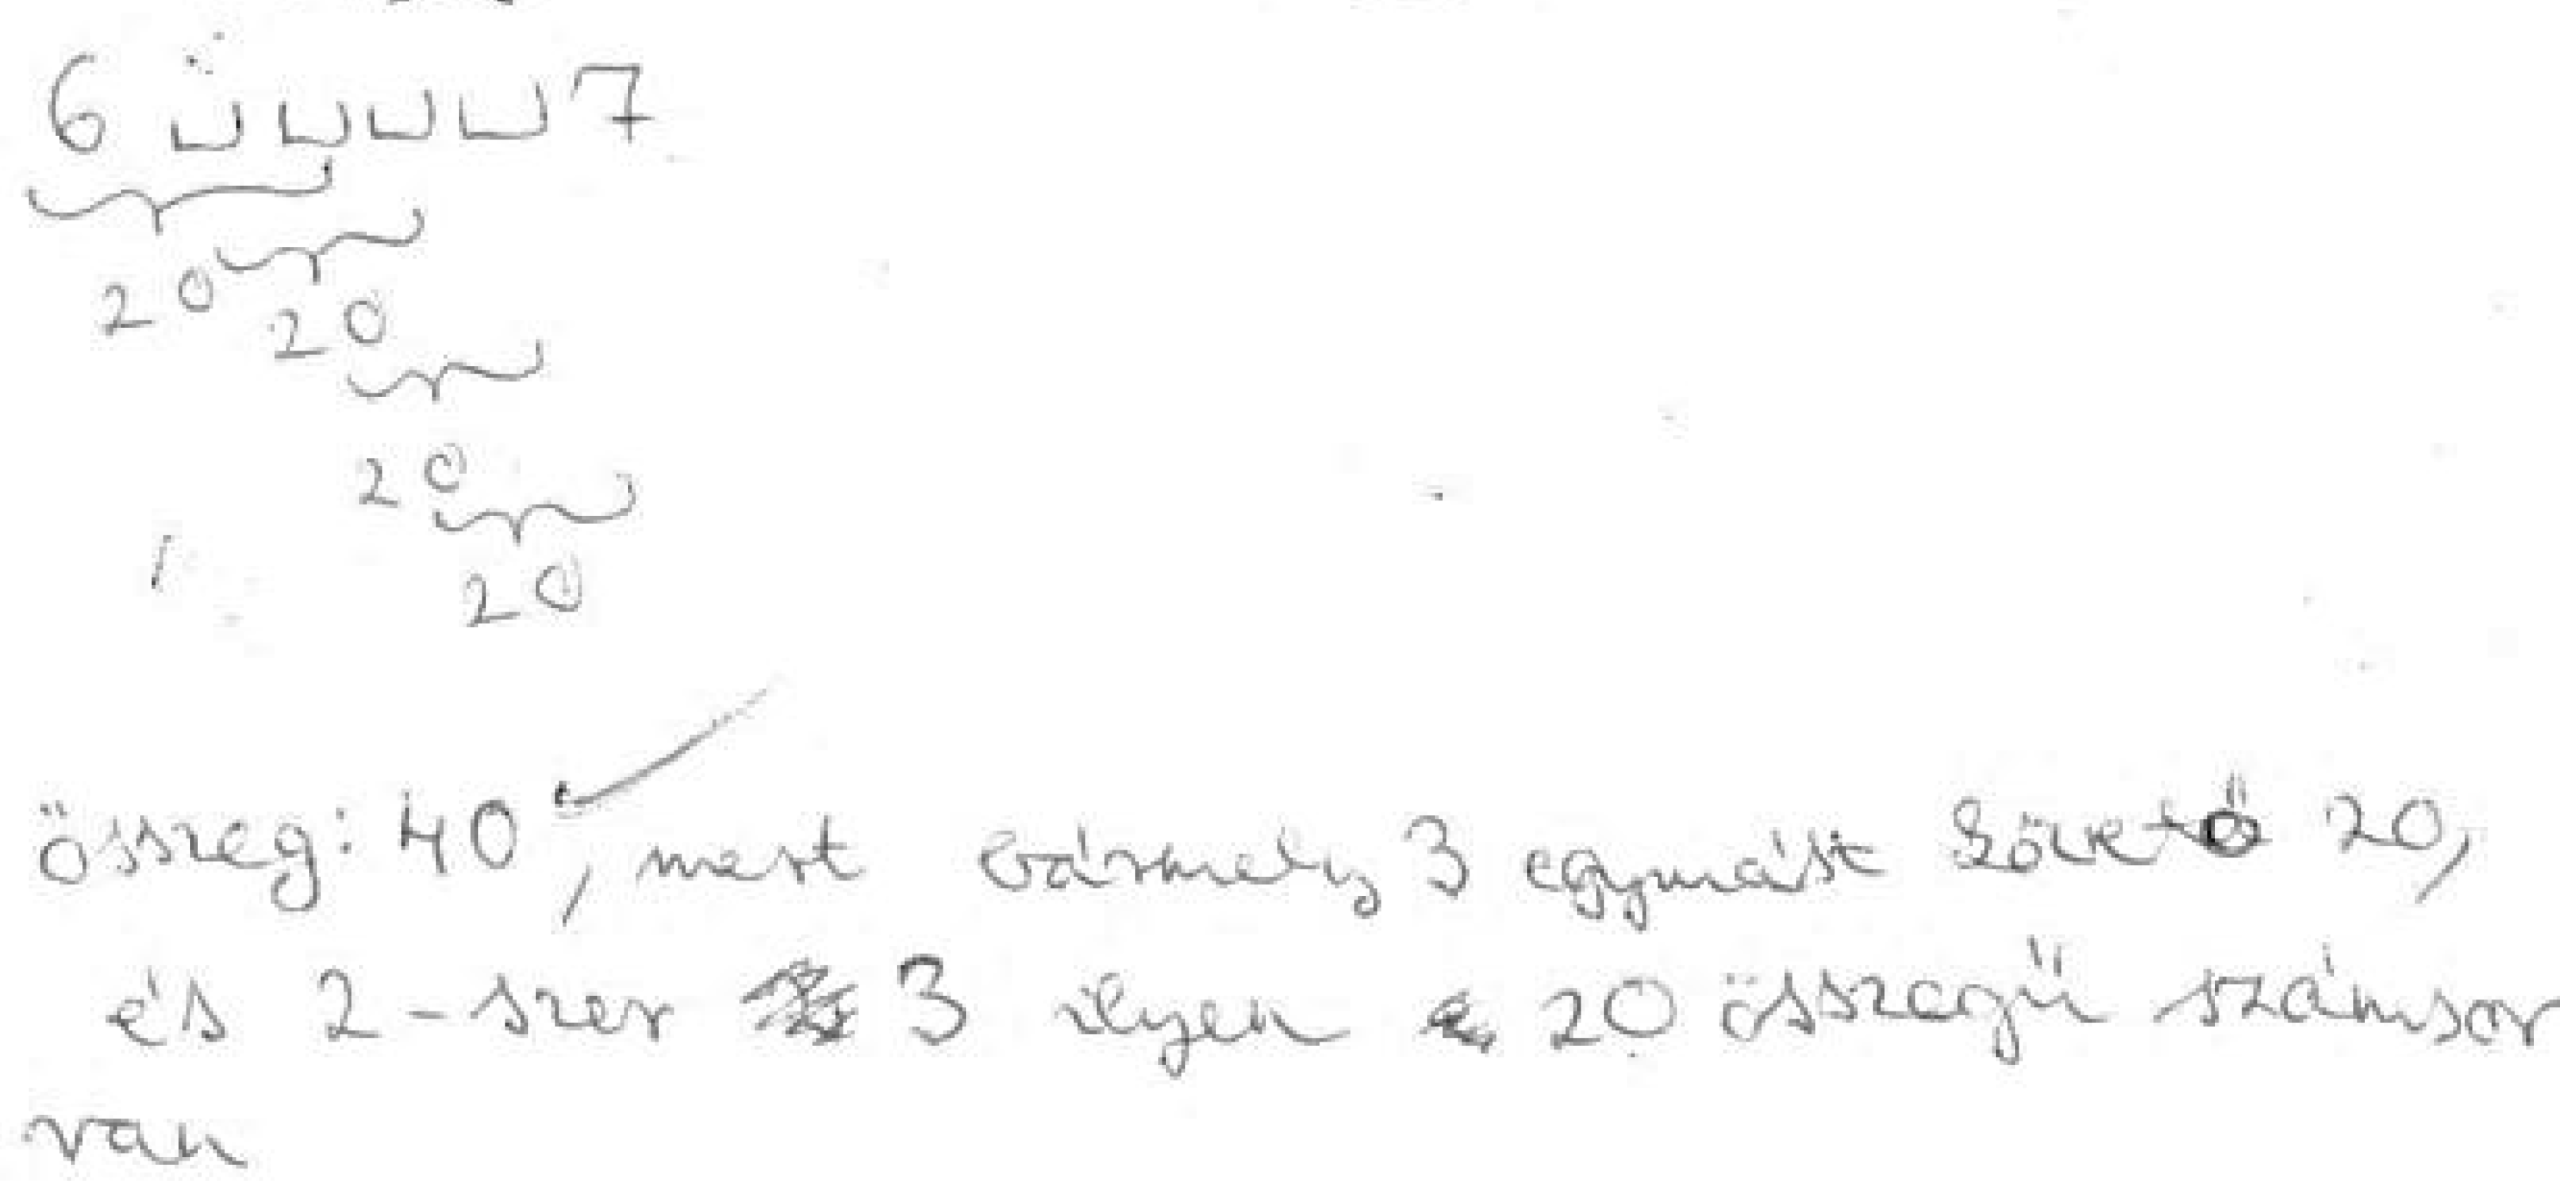 6 ⊔ ⊔ ⊔ ⊔ 7
20
20
20
20
összeg: 40, mert bármely 3 egymást követő 20,
és 2-szer 3 ilyen 20 összegű számsor
van